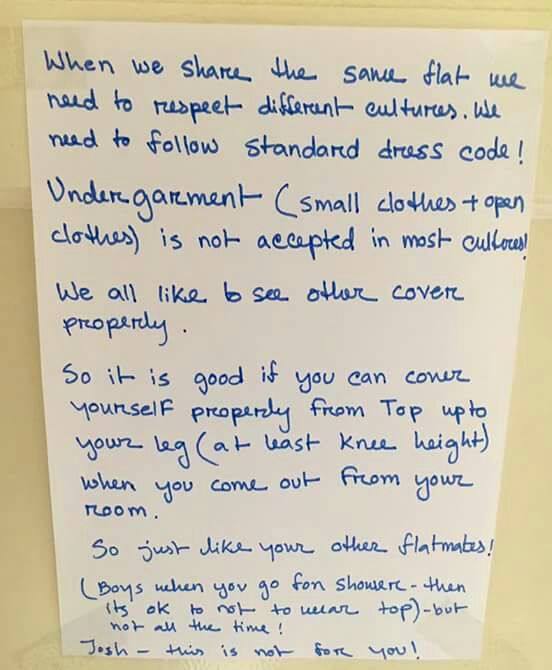 When we share the same flat we
need to respect different cultures. We
need to follow standard dress code!
Undergarment (small clothes + open
clothes) is not accepted in most cultures!
We all like to see other cover
properly.
So it is good if you can cover
yourself properly from Top up to
your leg (at least knee height)
when you come out from your
room.
So just like your other flatmates!
(Boys when you go for shower - then
its ok to not to wear top) - but
not all the time!
Josh - this is not for you!